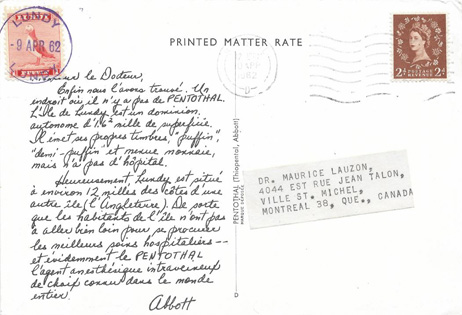 LUNDY
9 APR 62
PRINTED MATTER RATE
2d 2d
le Docteur,
Enfin nous l'avons trouvé. Un
endroit où il n'y a pas de PENTOTHAL.
L'île de Lundy est un dominion
autonome d'1.6² mille de superficie.
Il émet ses propres timbres, "puffin",
"demi-puffin" et menue monnaie,
mais n'a pas d'hôpital.
Heureusement, Lundy est situé
à environ 12 milles des côtes d'une
autre île (l'Angleterre). De sorte
que les habitants de l'île n'ont pas
à aller bien loin pour se procurer
les meilleurs soins hospitaliers --
et évidemment le PENTOTHAL
l'agent anesthésique intraveineux
de choix connu dans le monde
entier.
Abbott
PENTOTHAL (Thiopental, Abbott)
MARQUE DÉPOSÉE
DR. MAURICE LAUZON,
4044 EST RUE JEAN TALON,
VILLE ST. MICHEL,
MONTREAL 38, QUE., CANADA
D